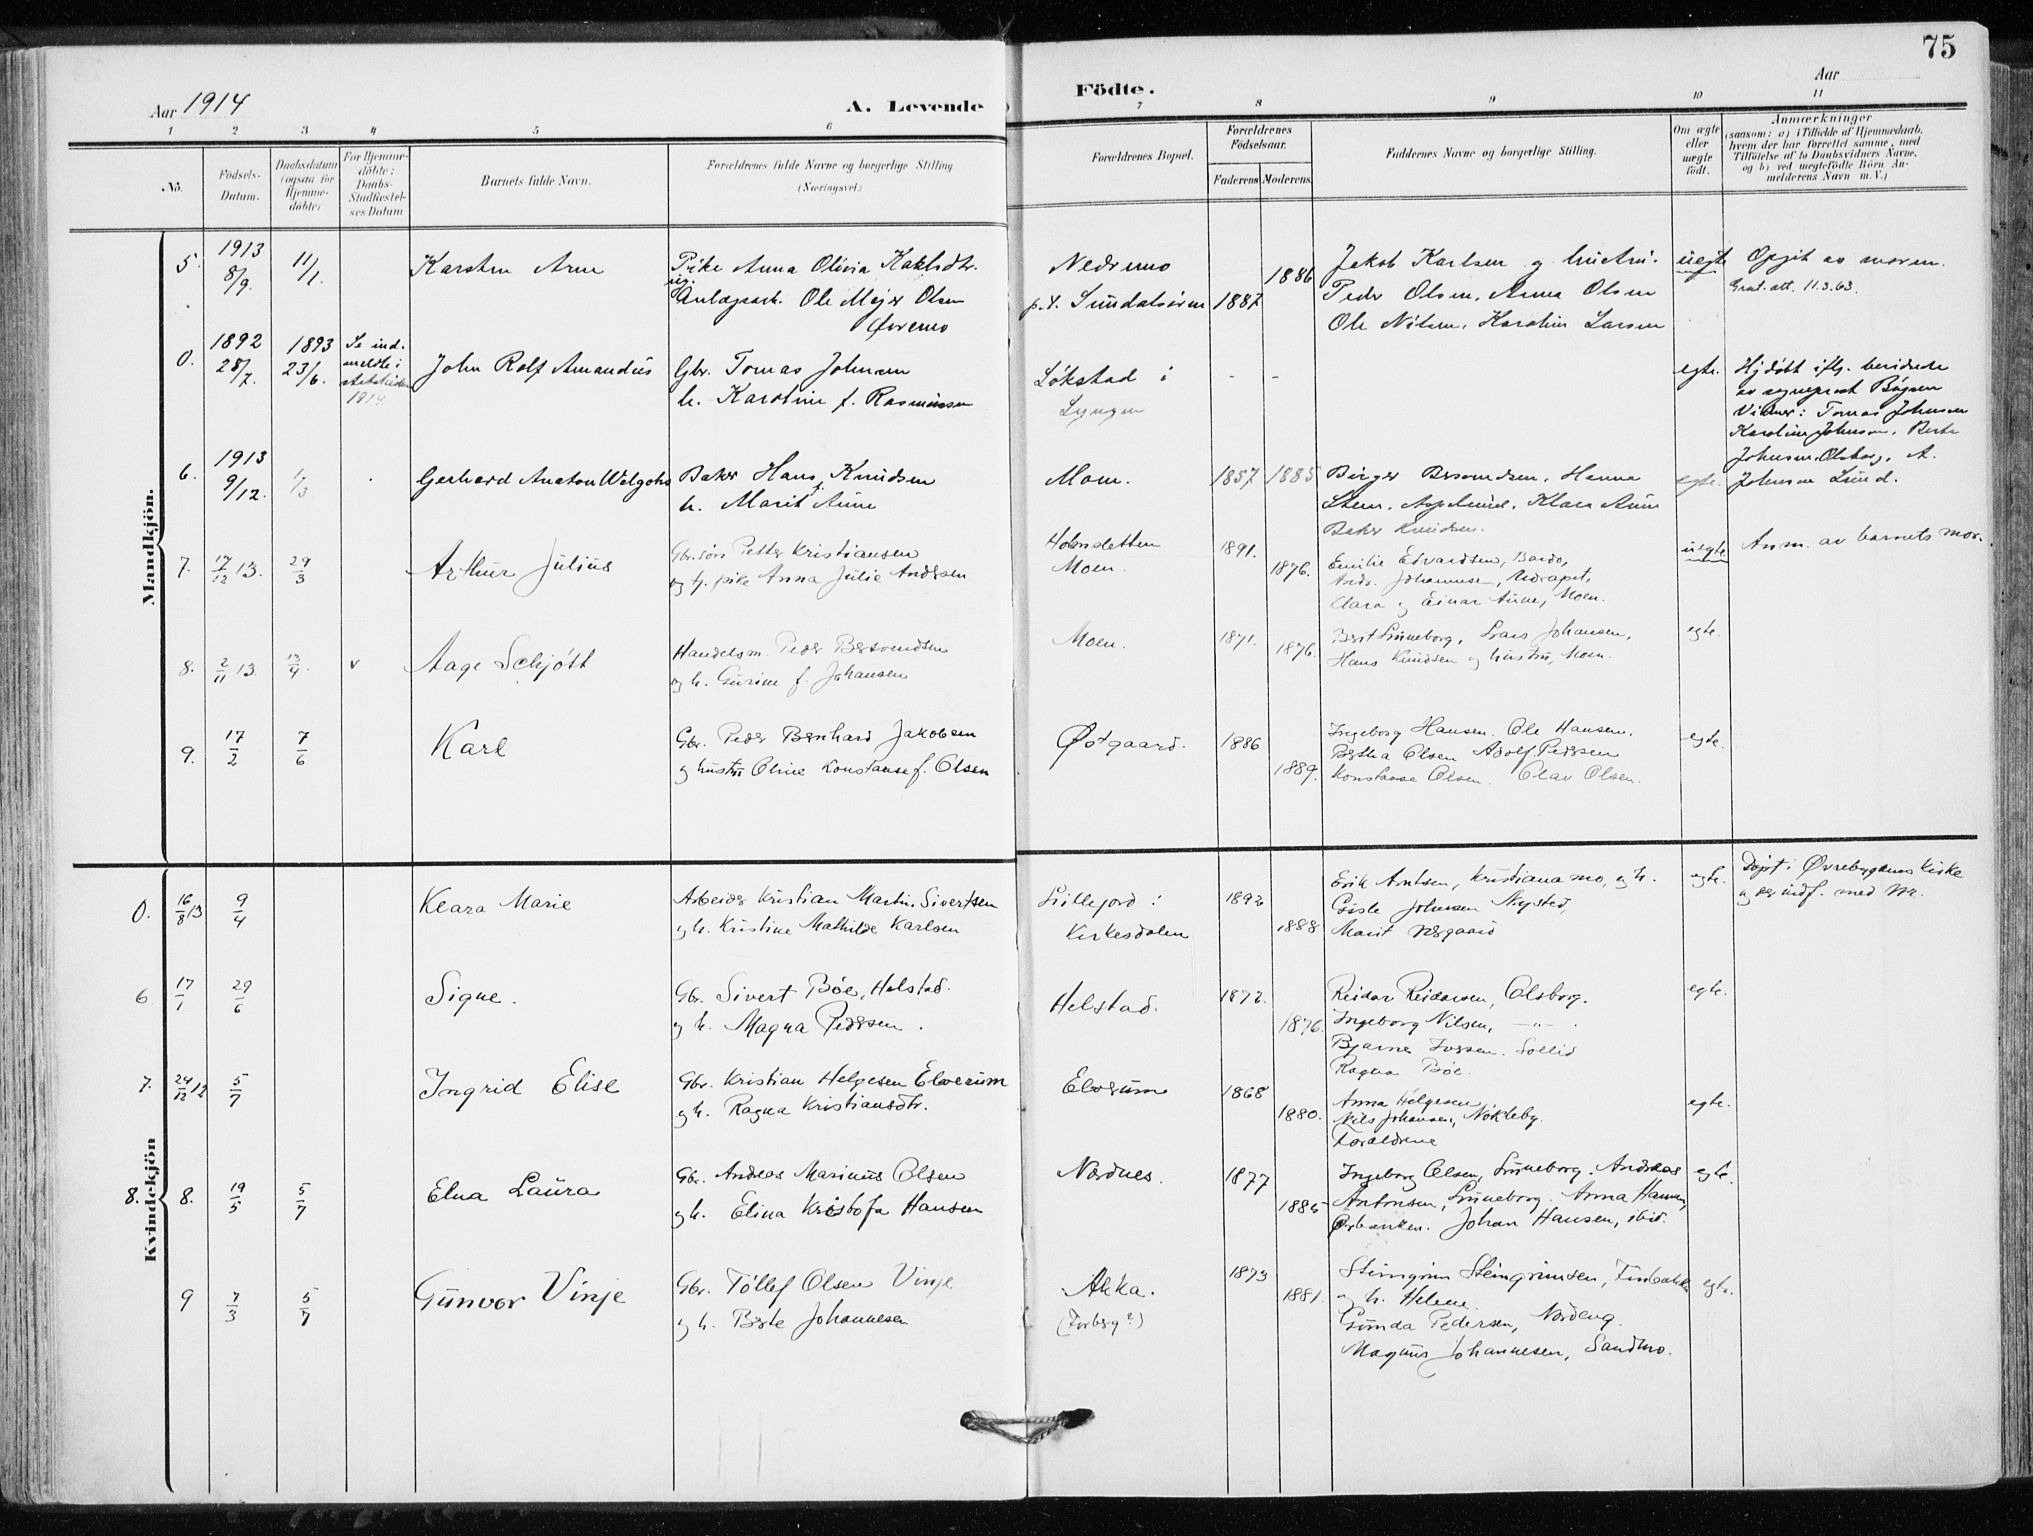 75
Aar 1914
A. Levende
Födte.
Aar
1 2 3 4 5 6 7 8 9 10 11
No.
Födsels-
Datum.
Daabsdatum
(ogsaa for
Hjemme-
døbte)
For Hjemme-
döbte:
Daabs-
Stadfæstel-
ses Datum
Barnets fulde Navn.
Forældrenes fulde Navne og borgerlige Stilling.
(Næringsvei.)
Forældrenes Bopæl.
Forældrenes
Födselsaar.
Faderens Moderens
Faddernes Navne og borgerlige Stilling.
Om ægte
eller
uægte
födt.
Anmærkninger
(saasom: a) i Tilfælde af Hjemmedaab,
hvem der har forrettet samme, med
Tilföielse af to Daabsvidners Navne,
og b) ved uægtefödte Börn An-
melderens Navn m. V.)
Mandkjön.
5. 1913 8/9. 11/1. Karsten Arne
Pike Anna Olivia
ug. Ole Mejer Olsen
Øvremo
Nedremo
p.t. Sundalsøren
1887 1886
Jakob Karlsen og hustru.
Peder Olsen, Anna Olsen
Ole Nilsen, Karoline Larsen
uegte
Opgit av moren.
11.3.63.
0. 1892 28/7. 1893 23/6.
Se ind-
meldte i
1914.
John Rolf Amandus
Gbr. Tomas Johnsen
h. Karoline f. Rasmussen
Løkstad i
Lyngen
- -
egte.
Hjdøbt iflg.
av sogneprest
Vidner: Tomas Johnsen
Karoline Johnsen, Berte
Johnsen, Olsborg, A.
Johnsen Lund.
6. 1913 9/12. 1/3 Gerhard Anaton
Baker Hans Knudsen
h. Marit Aune
Moen.
1857 1885
Birger Bersvendsen, Hanna
Klara Aune
Baker Knudsen.
egte.
7. 17/12 13. 29/3 Arthur Julius
Gbr.søn Petter Kristiansen
og tj. pike Anna Julie Andersen
Holmsletten
Moen.
1891. 1876.
Emilie Edvardsen, Bardo,
Andr. Johannesen,
Clara og Einar Aune, Moen.
uegte
Anm. av barnets mor.
8. 2/11 13. 13/4. v Aage Schjött
Handelsm. Peder Bersvendsen
og h. Gurine f. Johansen
Moen.
1871. 1876.
Berit Luneborg, Lars Johansen,
Hans Knudsen og hustru, Moen.
egte.
9. 17/2 7/6 Karl
Gbr. Peder Bernhard Jakobsen
og hustru Oline Konstanse f. Olsen
Østgaard.
1886 1889.
Ingeborg Hansen. Ole Hansen.
Bertha Olsen Adolf Pedersen
Konstanse Olsen. Olav Olsen.
egte.
Kvindekjön
0. 16/8 13 9/4 Klara Marie
Arbeider Kristian Martin Sivertsen
og h. Kristine Mathilde Karlsen
Lillefjord i
Kirkesdalen
1892 1888
Erik Arntsen, Kristianamo, og h.
Gisle Johnsen Nysted,
Marit
egte.
Døpt i Øvrebygdens kirke
og der indf. med Nr.
6 17/1 29/6 Signe.
Gbr. Sivert Bøe, Helstad.
og h. Magna Pedersen.
Helstad.
1872. 1876.
Reidar Reidarsen, Olsborg.
Ingeborg Nilsen, —"—.
Bjarne Iversen. Sollid
Ragna Bøe.
egte.
7. 24/12 12 5/7 Ingrid Elise
Gbr. Kristian Helgesen Elverum
og h. Ragna Kristiansdtr.
Elverum
1868 1880.
Anna Helgesen
Nils Johansen, Nøkleby.
Forældrene
egte.
8. 8. 19/5 5/7 Elna Laura
Gbr. Andreas Marinus Olsen
og h. Elina Kristofa Hansen
Nordnes.
1877 1885
Ingeborg Olsen, Luneborg. Andreas
Antonsen, Luneborg. Anna Hansen,
Johan Hansen, ibid.
egte.
9 7/3 5/7 Gunvor Vinje
Gbr. Tollef Olsen Vinje
og h. Berte Johannesen
Akka.
(Forberg?)
1873 1881.
Steingrim Steingrimsen,
og h. Helene.
Gunda Pedersen, Nordeng.
Magnus Johannesen, Sandmo.
egte.